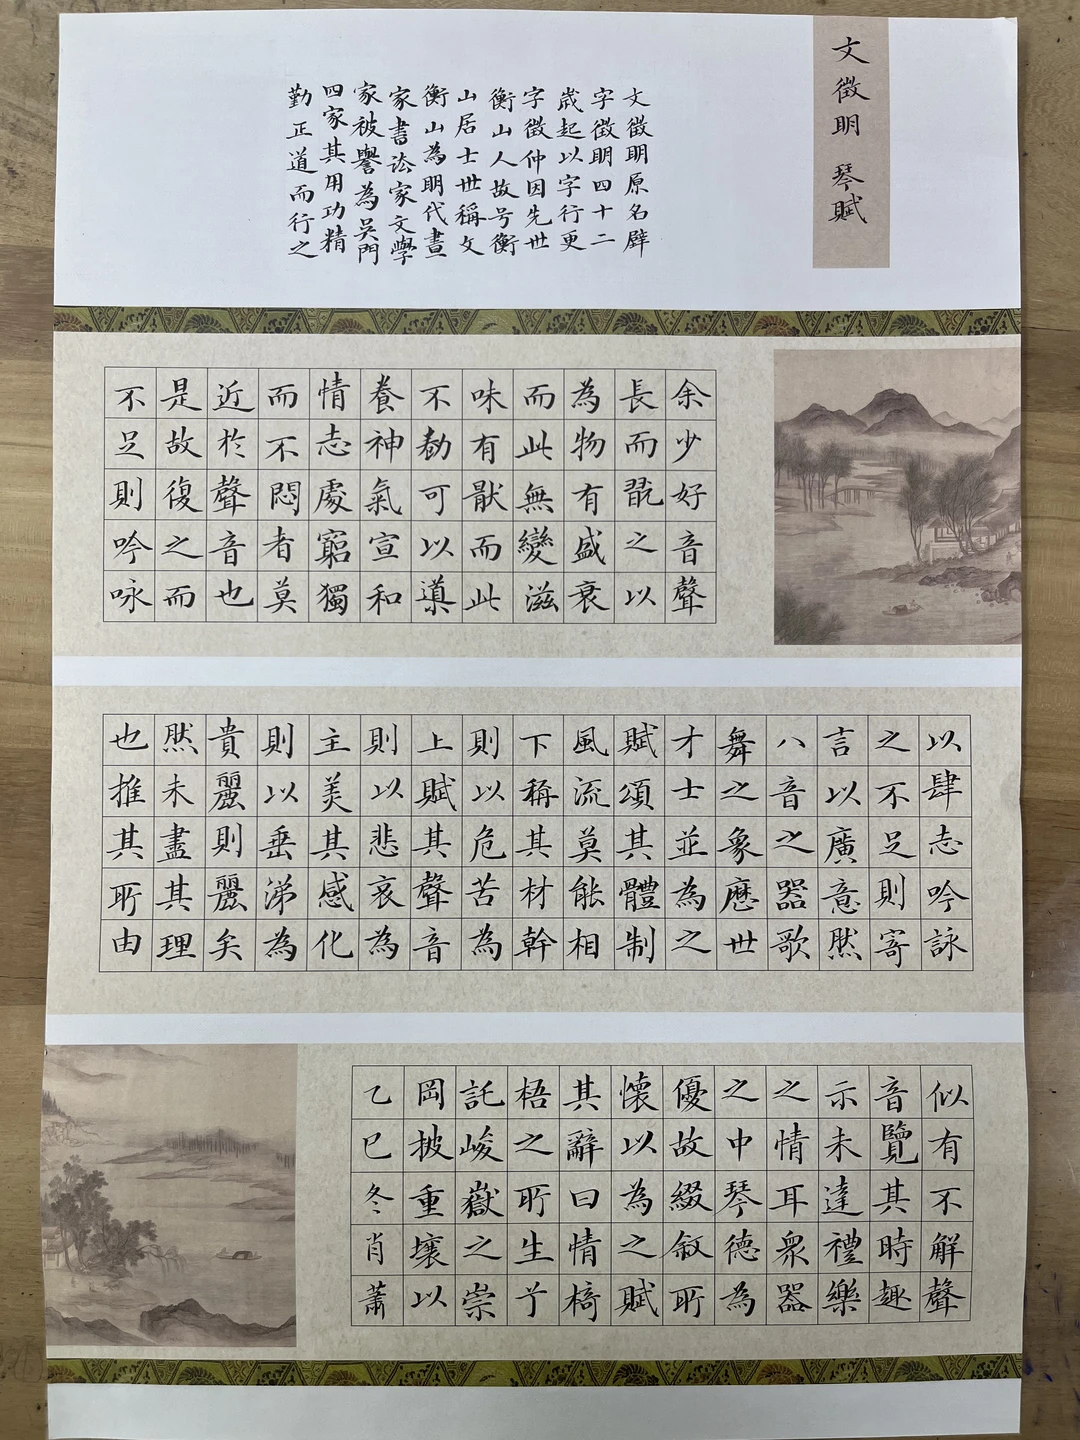 文徵明 琴賦
文徵明原名辟
字徵明四十二
歲起以字行更
字徵仲因先世
衡山人故号衡
山居士世稱文
衡山為明代畫
家書法家文學
家被譽為吳門
四家其用功精
勤正道而行之
余少好音聲
長而翫之以
為物有盛衰
而此無變滋
味有猒而此
不勌可以導
養神氣宣和
情志處窮獨
而不悶者莫
近於聲音也
是故復之而
不足則吟咏
以肆志吟詠
之不足則寄
言以廣意然
八音之器歌
舞之象歷世
才士並為之
賦頌其體制
風流莫能相
下稱其材幹
則以危苦為
上賦其聲音
則以悲哀為
主美其感化
則以垂涕為
貴麗則麗矣
然未盡其理
也推其所由
似有不解聲
音覽其時趣
示未達禮樂
之情耳衆器
之中琴德為
優故綴敘所
懷以為之賦
其辭曰情椅
梧之所生兮
託峻嶽之崇
岡披重壤以
乙巳冬肖蕭